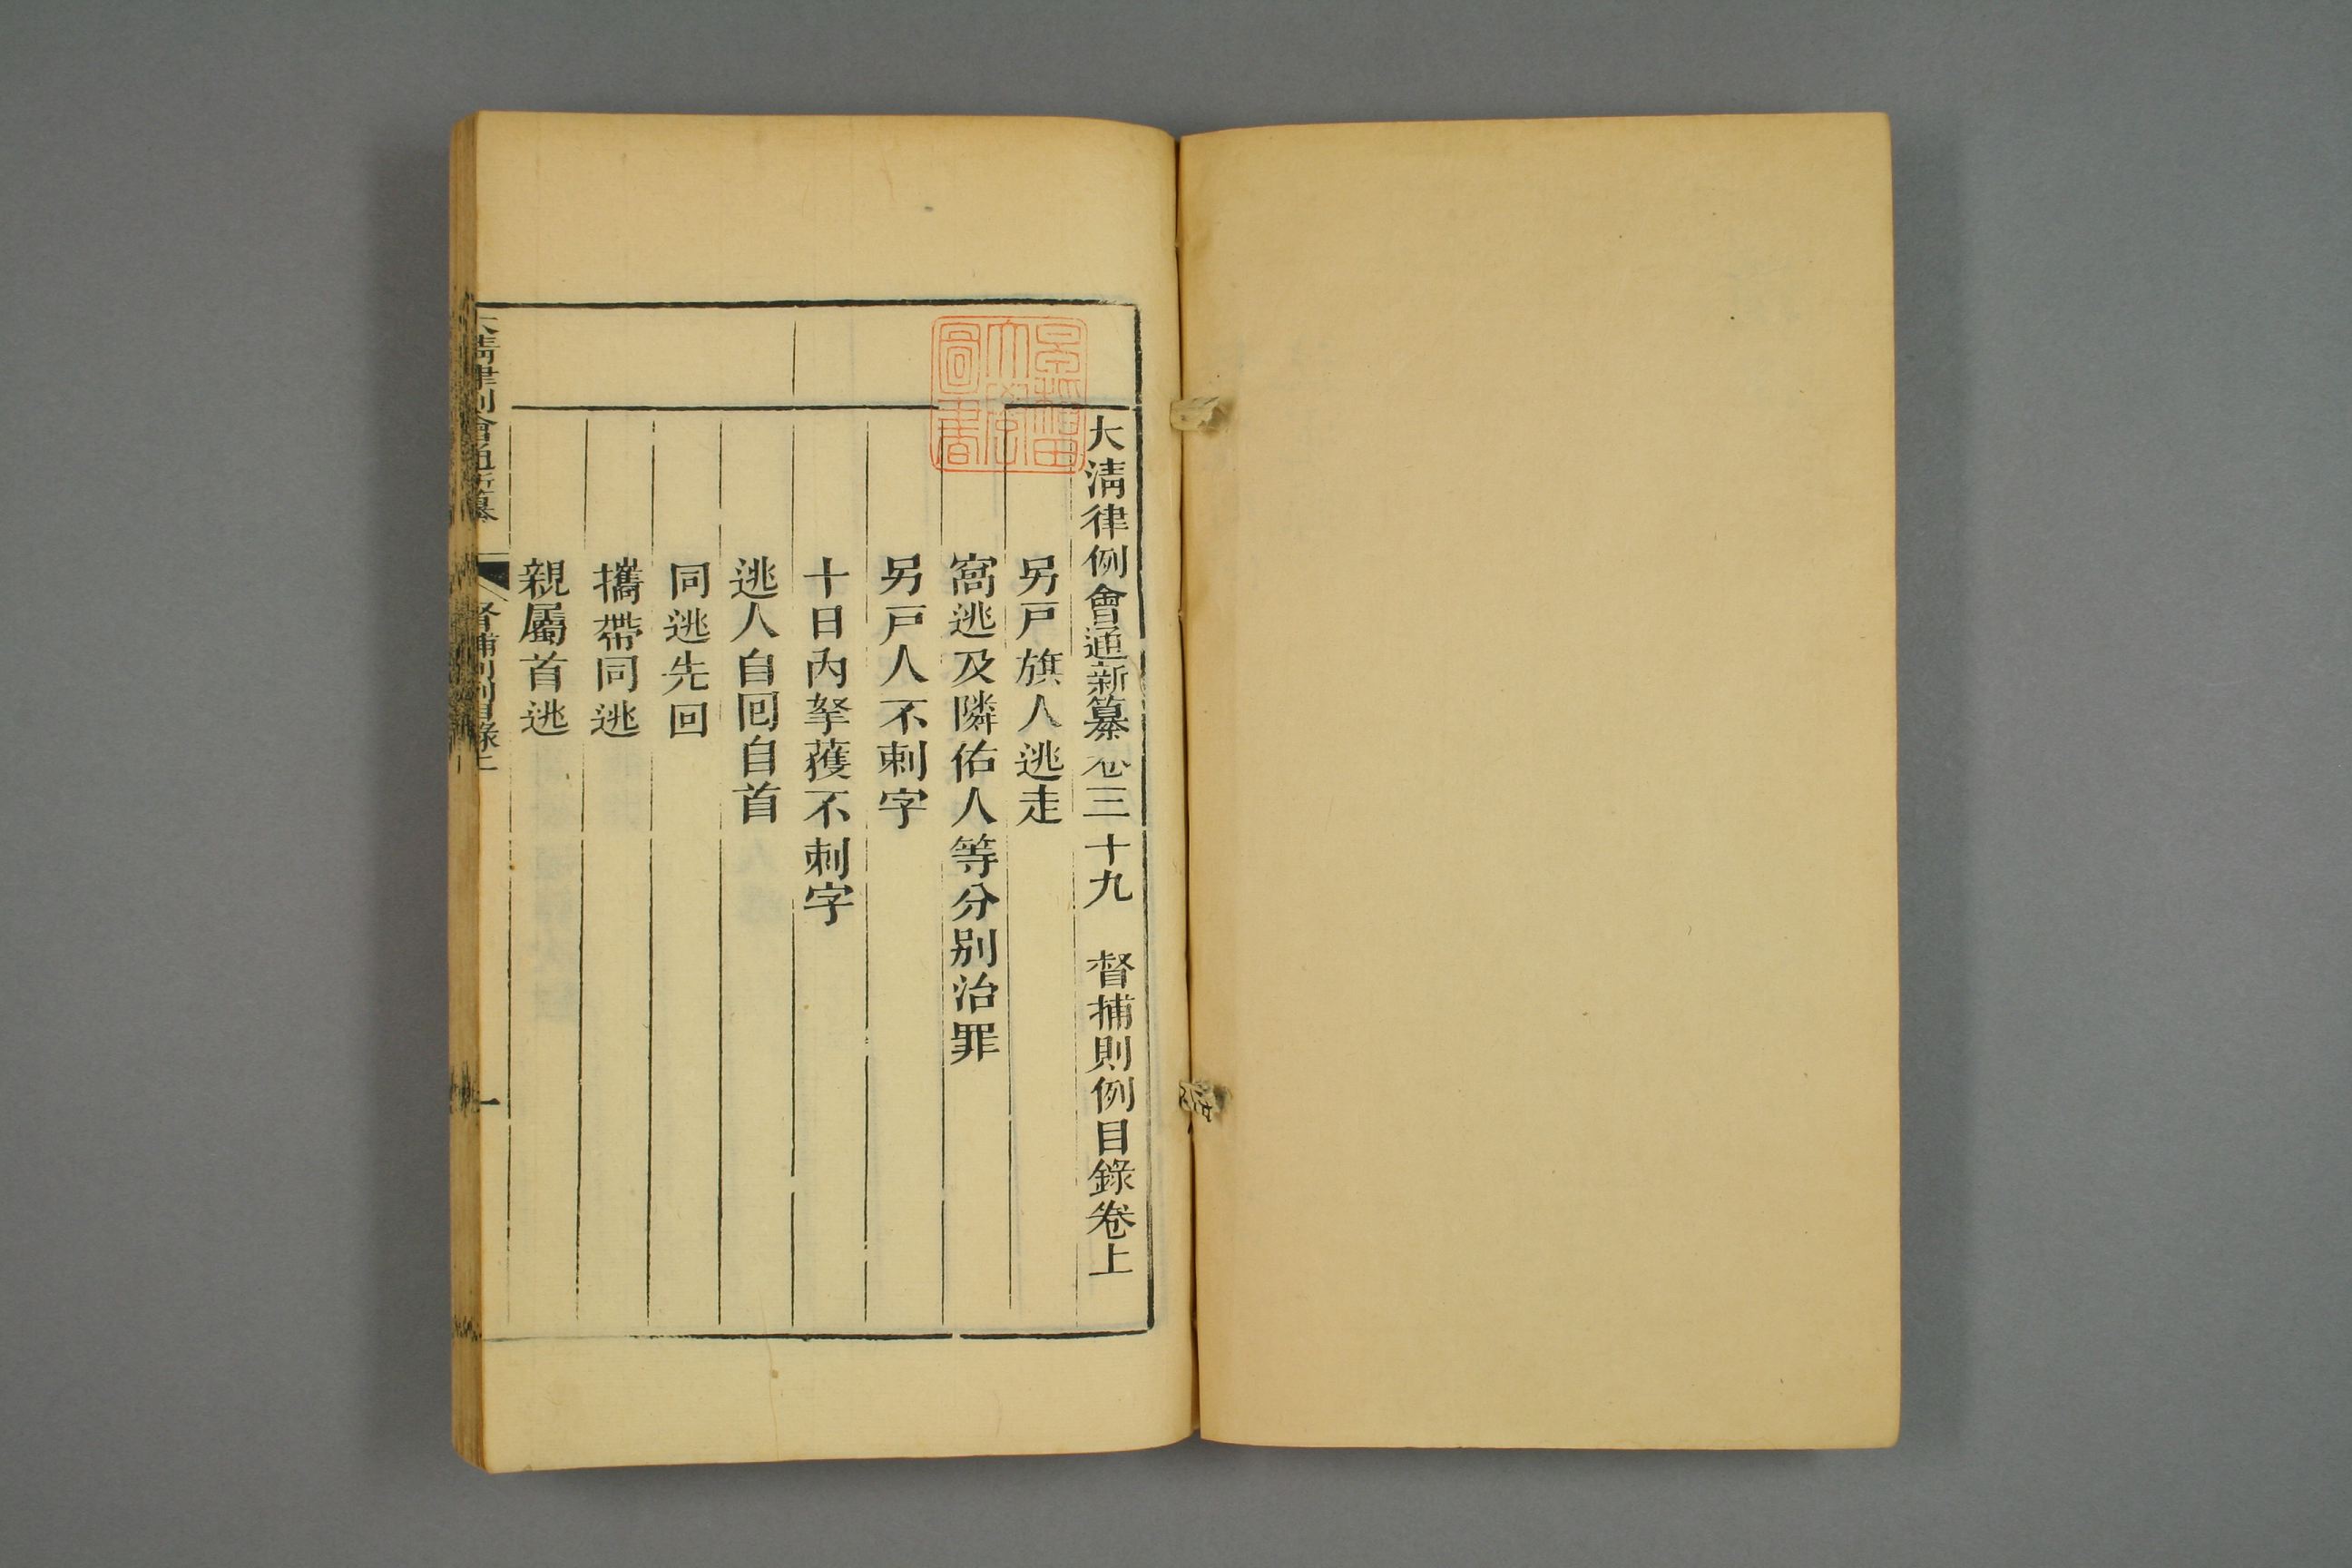 大淸律例會通新纂卷三十九　督捕則例目錄卷上
另戸旗人逃走
窩逃及隣佑人等分别治罪
另戸人不刺字
十日內拏獲不刺字
逃人自回自首
同逃先回
攜帶同逃
親屬首逃
大淸律例會通新纂
督捕則例目錄上
一
早稻田大學圖書